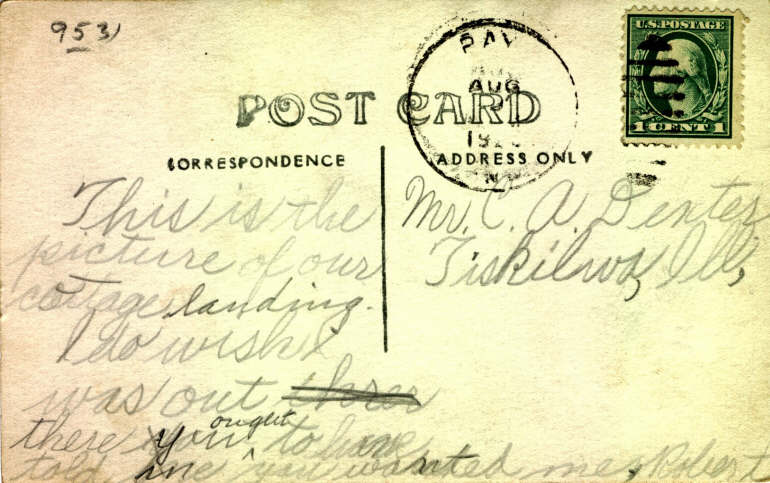 953
PAW
AUG
U.S. POSTAGE
1 CENT 1
POST CARD
CORRESPONDENCE
ADDRESS ONLY
This is the
picture of our
cottage landing.
I do wish I
was out
there you ought to have
told me you wanted me, Robert
Mr. C. A. Dexter
Tiskilwa, Ill,